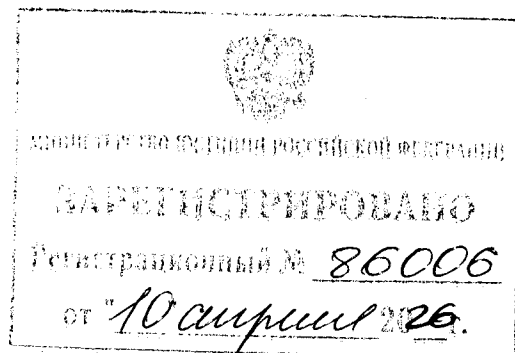 МИНИСТЕРСТВО ЮСТИЦИИ РОССИЙСКОЙ ФЕДЕРАЦИИ
ЗАРЕГИСТРИРОВАНО
Регистрационный № 86006
от "10 апреля 2026.